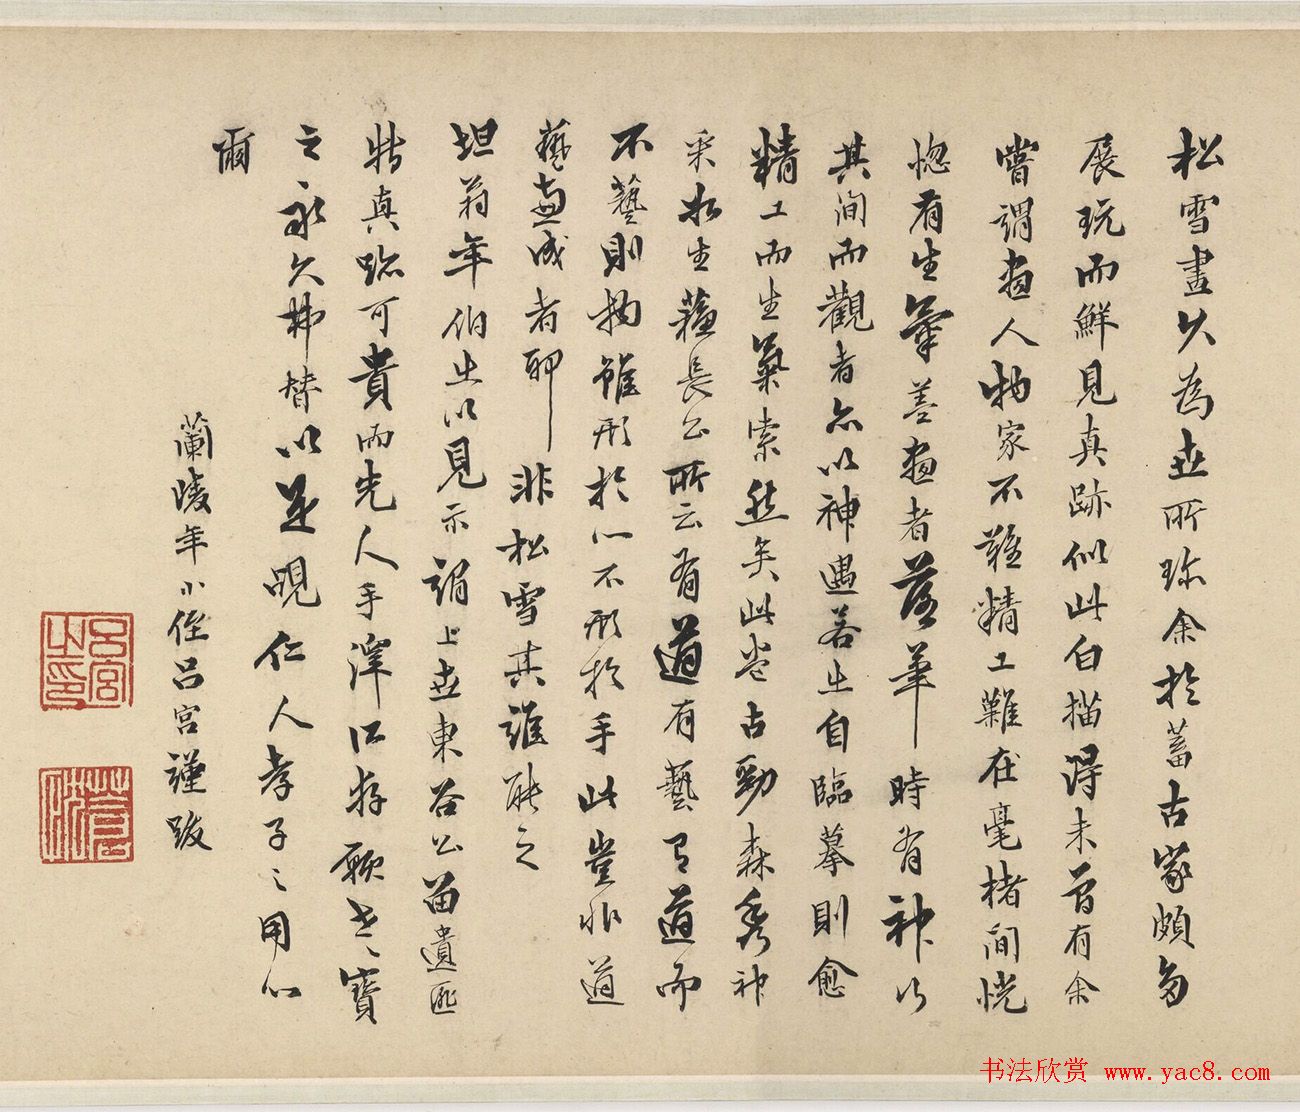 松雪畫久為世所珍余於蓄古家頗多
展玩而鮮見真跡似此白描得未曾有余
嘗謂畫人物家不難精工難在毫楮間恍
惚有生氣善畫者落筆時有神行
其間而觀者亦以神遇若止自臨摹則愈
精工而生氣索然矣此卷古勁森秀神
采如生蘇長公所云有道有藝有道而
不藝則物雖形於心不形於手此豈非道
藝兩成者耶非松雪其誰能之
坦翁年伯出以見示謂上世東谷公留遺匪
特真跡可貴而先人手澤口存願世世寶
之永久弗替以是覘仁人孝子之用心
爾
蘭陵年小侄呂宮謹跋
呂宮之印
书法欣赏 www.yac8.com